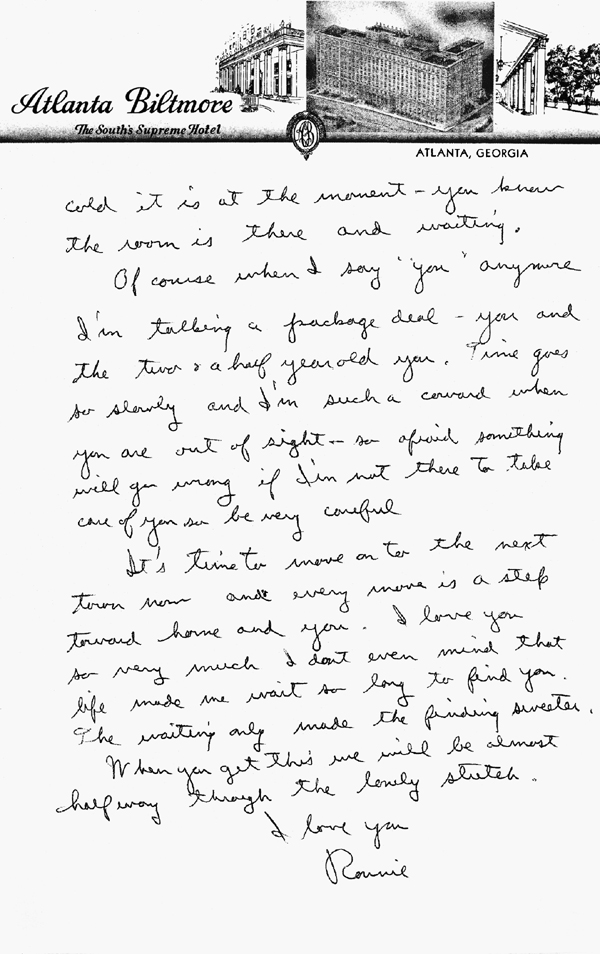 Atlanta Biltmore
The South's Supreme Hotel
ATLANTA, GEORGIA
cold it is at the moment – you know
the room is there and waiting.
Of course when I say "you" anymore
I'm talking a package deal – you and
the two & a half year old you. Time goes
so slowly and I'm such a coward when
you are out of sight – so afraid something
will go wrong if I'm not there to take
care of you so be very careful
It's time to move on to the next
town now and every move is a step
toward home and you. I love you
so very much I don't even mind that
life made me wait so long to find you.
The waiting only made the finding sweeter.
When you get this we will be almost
halfway through the lonely stretch.
I love you
Ronnie